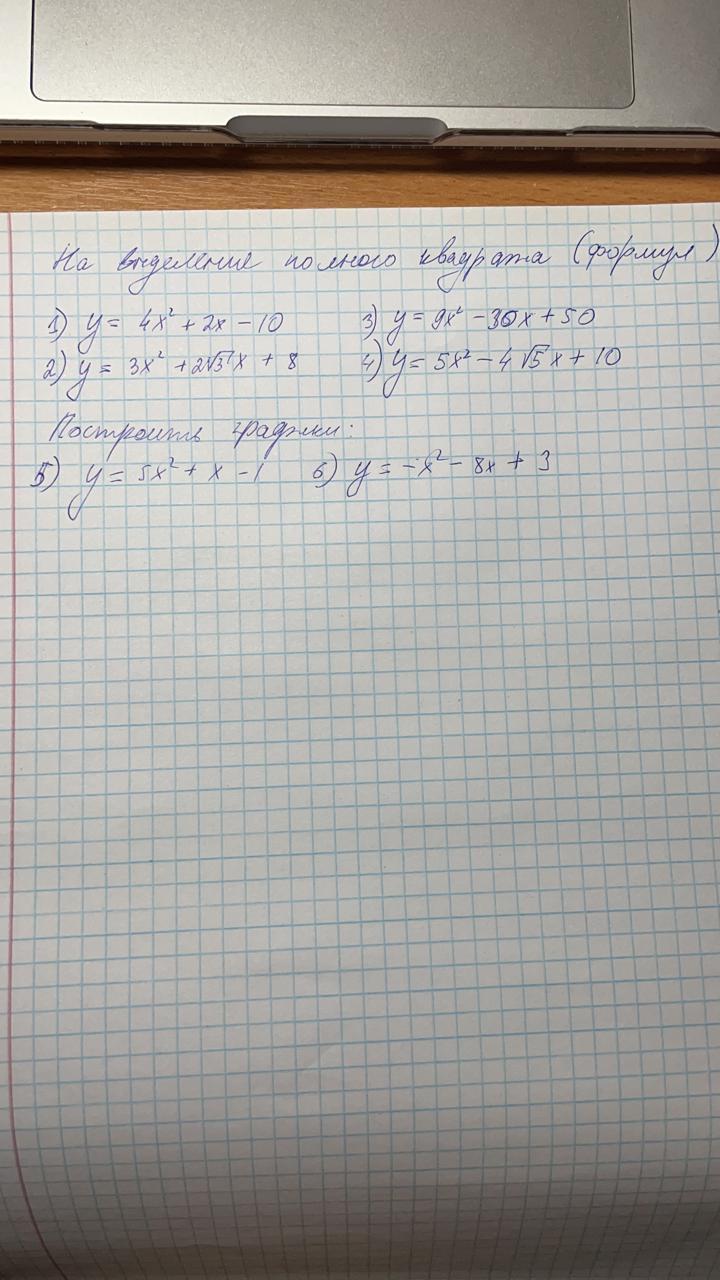 На выделение полного квадрата (формул)
1) y = 4x² + 2x - 10 3) y = 9x² - 30x + 50
2) y = 3x² + 2√3x + 8 4) y = 5x² - 4√5x + 10
Построить графики:
5) y = 5x² + x - 1 6) y = -x² - 8x + 3